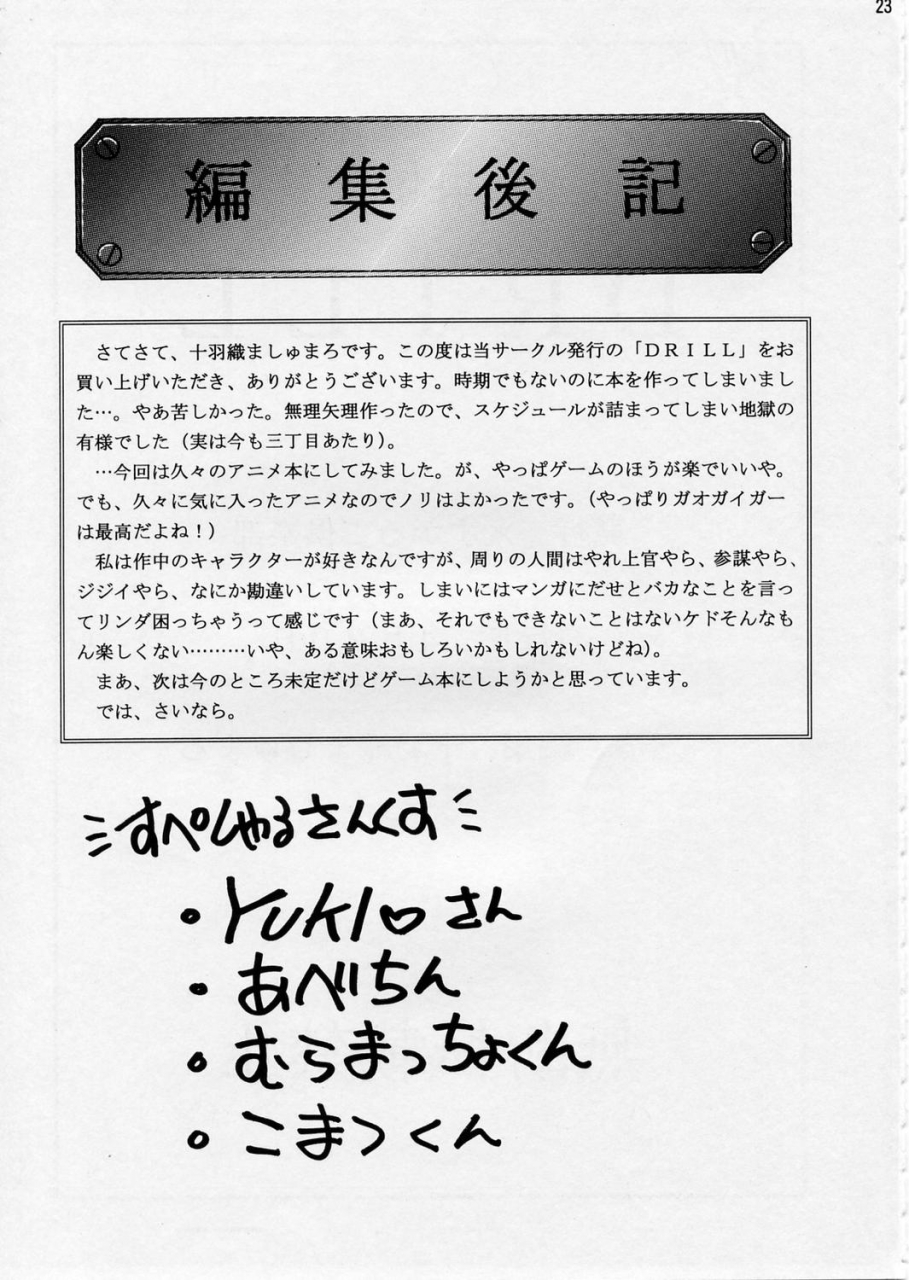 23
編集後記
さてさて、十羽織ましゅまろです。この度は当サークル発行の「ＤＲＩＬＬ」をお
買い上げいただき、ありがとうございます。時期でもないのに本を作ってしまいまし
た…。やあ苦しかった。無理矢理作ったので、スケジュールが詰まってしまい地獄の
有様でした（実は今も三丁目あたり）。
…今回は久々のアニメ本にしてみました。が、やっぱゲームのほうが楽でいいや。
でも、久々に気に入ったアニメなのでノリはよかったです。（やっぱりガオガイガー
は最高だよね！）
私は作中のキャラクターが好きなんですが、周りの人間はやれ上官やら、参謀やら、
ジジイやら、なにか勘違いしています。しまいにはマンガにだせとバカなことを言っ
てリンダ困っちゃうって感じです（まあ、それでもできないことはないケドそんなも
ん楽しくない………いや、ある意味おもしろいかもしれないけどね）。
まあ、次は今のところ未定だけどゲーム本にしようかと思っています。
では、さいなら。
すぺしゃるさんくす
・YUKI♡さん
・あべちん
・むらまっちょくん
・こまつくん